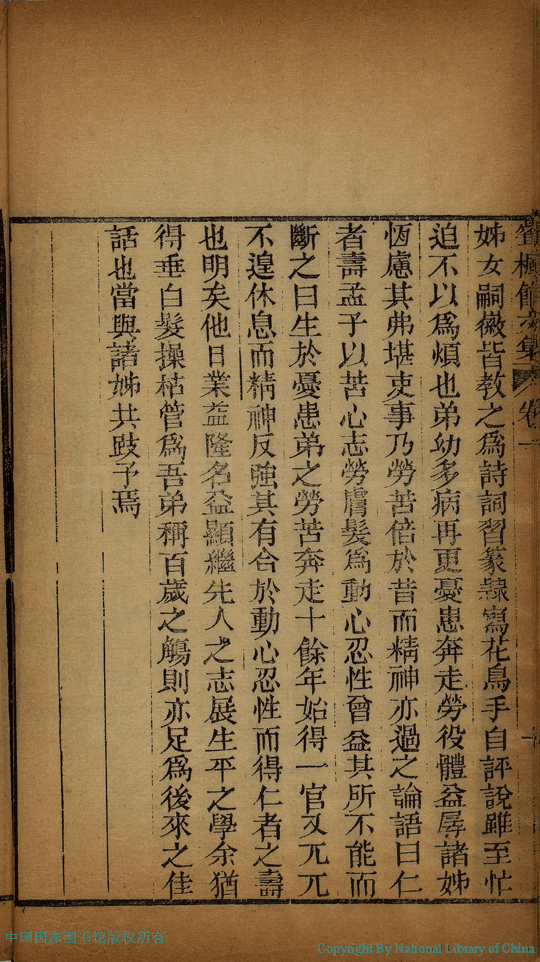 姊女嗣徽皆教之爲詩詞習篆隸寫花鳥手自評說雖至忙
迫不以爲煩也弟幼多病再更憂患奔走勞役體益孱諸姊
恆慮其弗堪吏事乃勞苦倍於昔而精神亦過之論語曰仁
者壽孟子以苦心志勞膚髮爲動心忍性曾益其所不能而
斷之曰生於憂患弟之勞苦奔走十餘年始得一官又兀兀
不遑休息而精神反強其有合於動心忍性而得仁者之壽
也明矣他日業益隆名益顯繼先人之志展生平之學余猶
得垂白髮操枯管爲吾弟稱百歲之觴則亦足爲後來之佳
話也當與諸姊共跂予焉
中国国家图书馆版权所有
Copyright By National Library of China